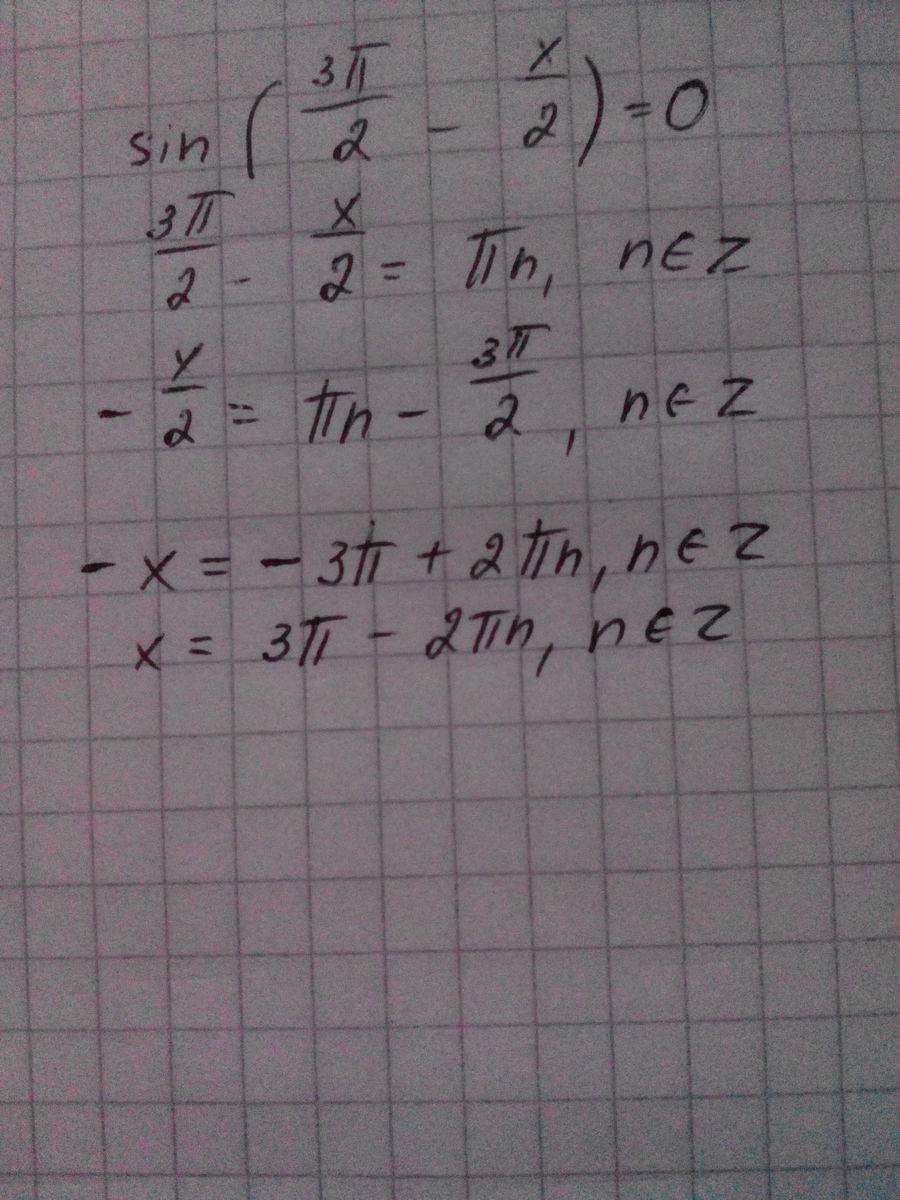 sin(3π/2 - x/2) = 0
3π/2 - x/2 = πn, n∈Z
- x/2 = πn - 3π/2, n∈Z
- x = - 3π + 2πn, n∈Z
x = 3π - 2πn, n∈Z